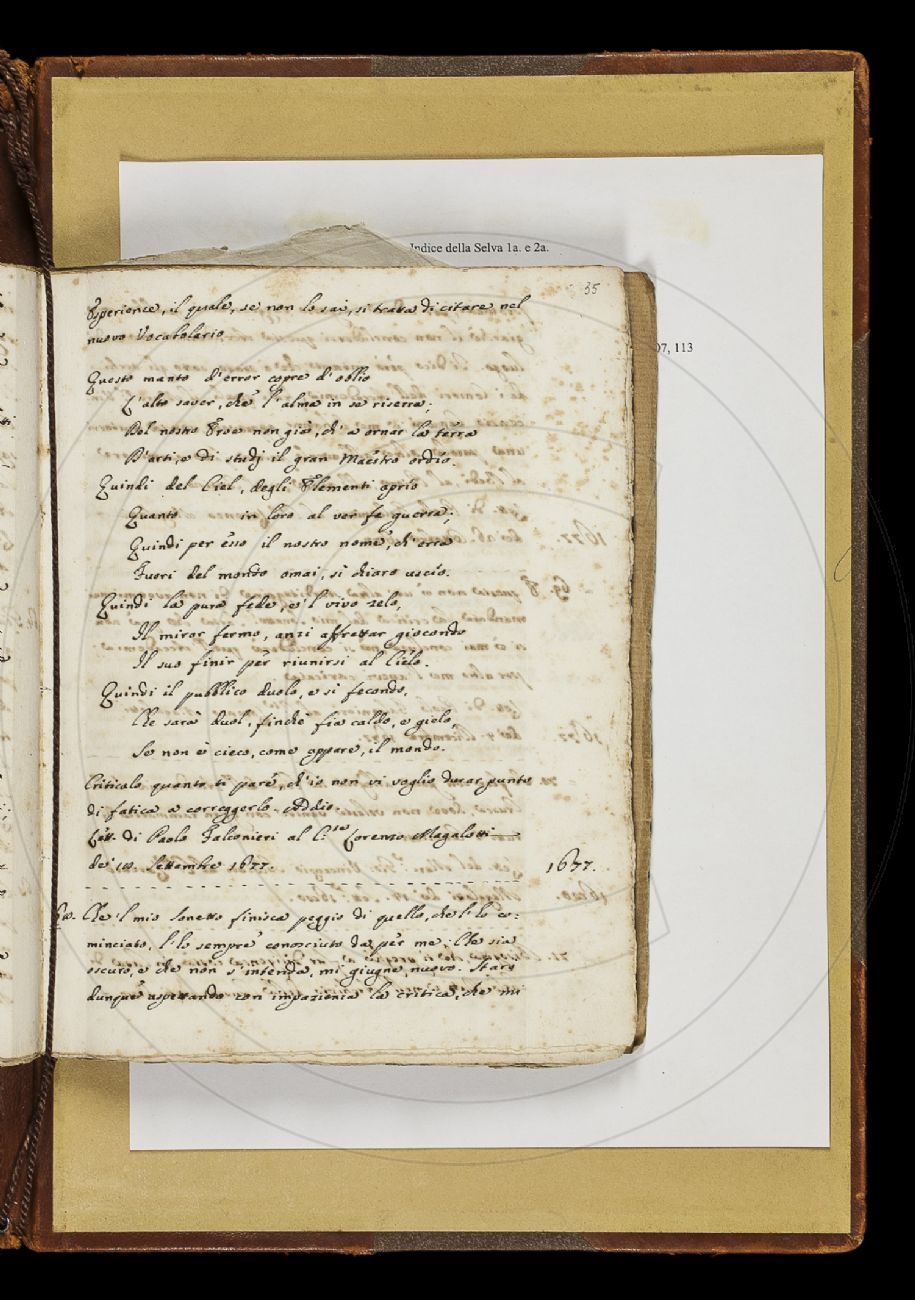 Indice della Selva 1a. e 2a.
35
07, 113
Esperienze, il quale, se non lo sai, si tratta di citare nel
nuovo Vocabolario.
Questo manto d'error copre d'oblio
L'alto saver, che l'alma in se riserra;
Del nostro Eroe non già, ch'a ornar la terra
D'arti, e di studj il gran Maestro ordìo.
Quindi del Ciel, degli Elementi aprìo
Quanto in loro al ver fe guerra;
Quindi per esso il nostro nome, ch'erra
Fuori del mondo omai, sì chiaro uscìo.
Quindi la pura fede, e 'l vivo zelo,
Il mirar fermo, anzi affrettar giocondo
Il suo finir per riunirsi al Cielo.
Quindi il pubblico duolo, e sì fecondo,
Che sarà duol, finchè fia caldo, e gielo,
Se non è cieco, come appare, il mondo.
Criticalo quanto ti pare, ch'io non vi voglio durar punto
di fatica a correggerlo. Addio.
Lett. di Paolo Falconieri al C.te Lorenzo Magalotti
de' 18. Settembre 1677. 1677.
Che 'l mio Sonetto finisca peggio di quello, che l'ho co-
minciato, l'ho sempre conosciuto da per me; Che sia
oscuro, e che non s'intenda, mi giugne nuovo. Starò
dunque aspettando con impazienza la critica, che mi